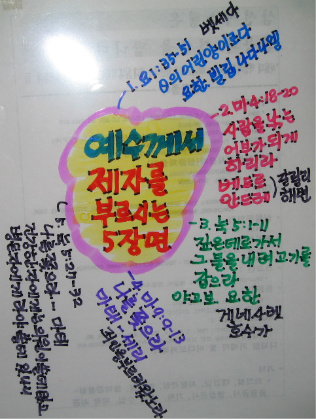 예수께서
제자를
부르시는
5장면
1. 요1:35-51 벳새다
θ의 어린양이로다
요한, 빌립 나다나엘
2. 마4:18-20
사람을 낚는
어부가 되게
하리라
베드로
안드레
갈릴리
해변
3. 눅5:1-11
깊은데로가서
그물을 내려 고기를
잡으라
야고보 요한
게네사렛
호숫가
4. 마9:9-13
나를 쫓으라
마태-세리
죄인을 부르러 왔노라
5. 눅5:27-32
나를 쫓으라... 마태
건강한자에게는 의원이 쓸데없고
병든자에게라야 쓸데 있나니